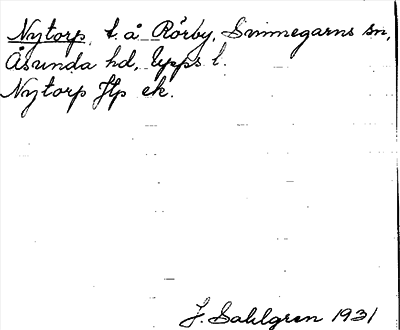 Nytorp, t. å Rörby, Svinnegarns sn,
Åsunda hd, Upps l.
Nytorp Jtp ek.
J. Sahlgren 1931